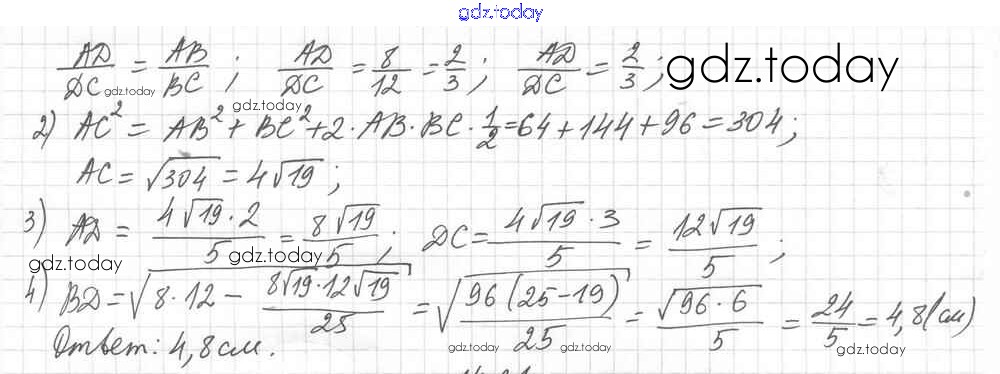 gdz.today
AD/DC = AB/BC ; AD/DC = 8/12 = 2/3 ; AD/DC = 2/3 ; gdz.today
gdz.today
gdz.today
2) AC² = AB² + BC² + 2 · AB · BC · 1/2 = 64 + 144 + 96 = 304 ;
AC = √304 = 4√19 ;
3) AD = 4√19 · 2/5 = 8√19/5 ; DC = 4√19 · 3/5 = 12√19/5 ;
gdz.today gdz.today
4) BD = √(8 · 12 − 8√19 · 12√19/25) = √(96(25−19)/25) = √(96 · 6)/5 = 24/5 = 4,8 (см)
Ответ: 4,8 см. gdz.today gdz.today gdz.today